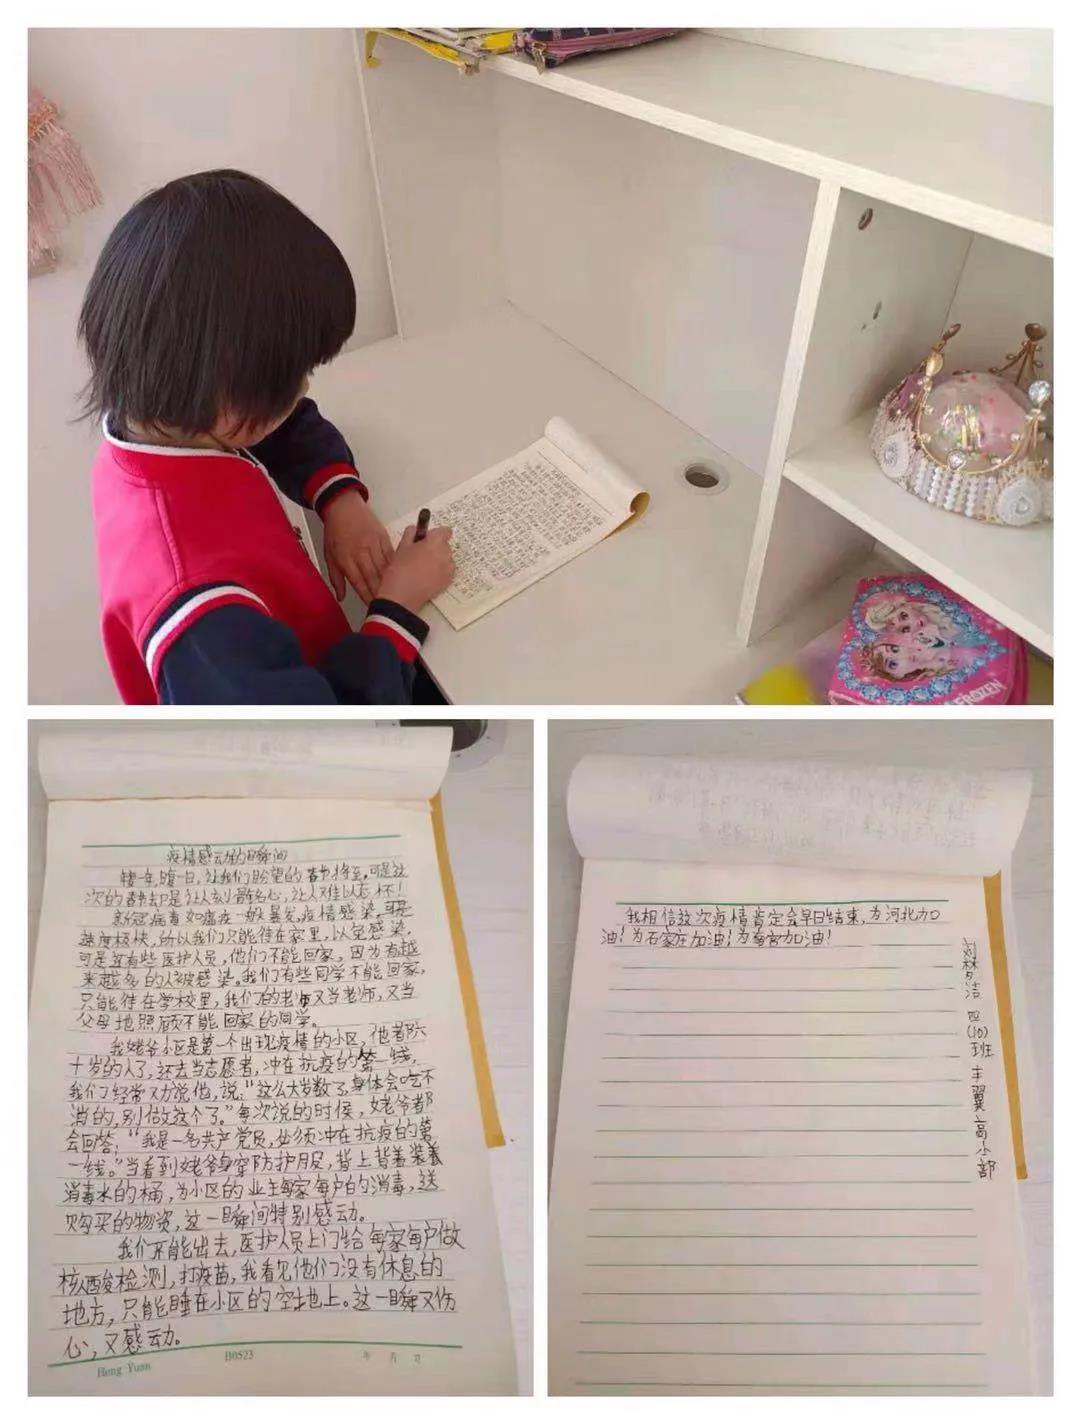 FROZEN
疫情感动的瞬间
辞一年,腹一日,让我们盼望的春节将至。可是这
次的春节却是让人刻骨铭心,让人难以忘怀!
新冠病毒如瘟疫一般暴发,疫情感染。可是
速度极快,所以我们只能待在家里,以免感染,
可是还有些医护人员,他们不能回家,因为有越
来越多的人被感染。我们有些同学不能回家,
只能待在学校里,我们的老师又当老师,又当
父母地照顾不能回家的同学。
我姥爷小区是第一个出现疫情的小区,他都六
十岁的人了,还去当志愿者,冲在抗疫的第一线,
我们经常劝说他,说:“这么大岁数了,身体会吃不
消的,别做这个了。”每次说的时候,姥爷都
会回答:“我是一名共产党员,必须冲在抗疫的第
一线。”当看到姥爷身穿防护服,背上背着装着
消毒水的桶,为小区的业主每家每户的消毒,送
购买的物资,这一瞬间特别感动。
我们不能出去,医护人员上门给每家每户做
核酸检测,打疫苗,我看见他们没有休息的
地方,只能睡在小区的空地上。这一瞬又伤
心,又感动。
Heng Yuan B0523 年 月 日
我相信这次疫情肯定会早日结束,为河北加
油!为石家庄加油!为藁宫加油!
刘梦洁 四(10)班 丰翼高小部